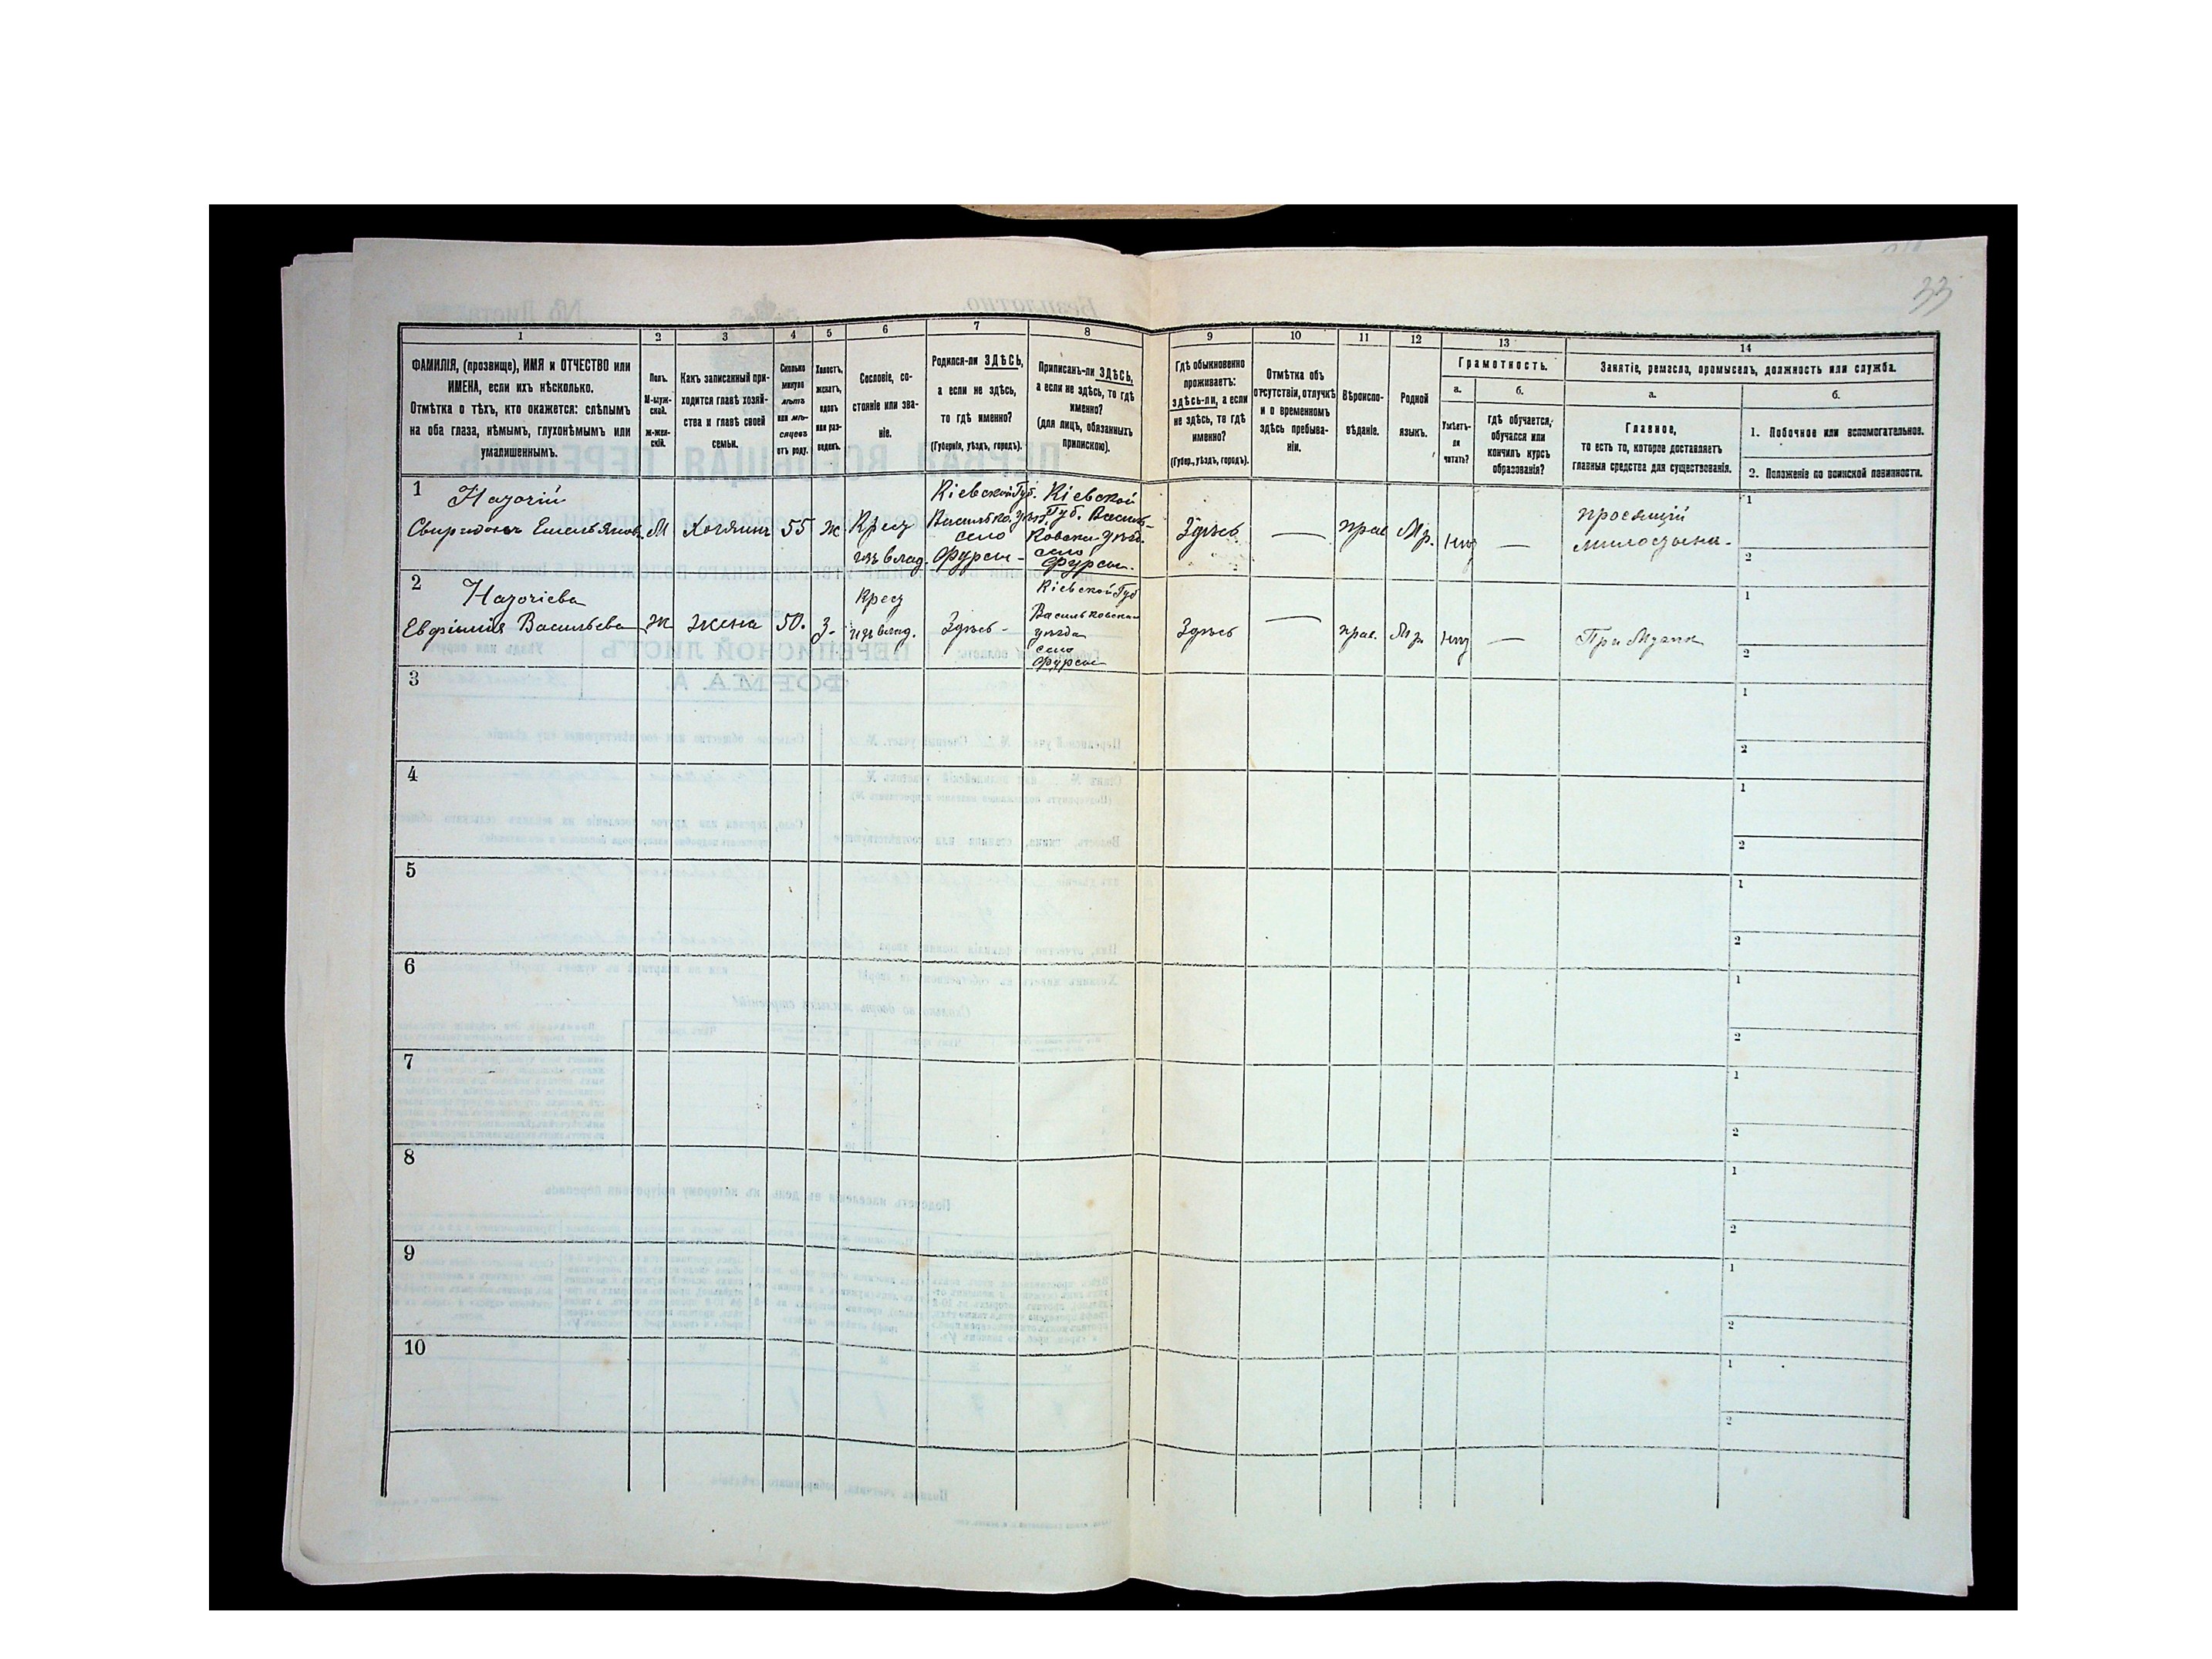 33
1
2
3
4
5
6
7
8
9
10
11
12
13
14
ФАМИЛІЯ, (прозвище), ИМЯ и ОТЧЕСТВО или
ИМЕНА, если ихъ нѣсколько.
Отмѣтка о тѣхъ, кто окажется: слѣпымъ
на оба глаза, нѣмымъ, глухонѣмымъ или
умалишеннымъ.
Полъ.
М-муж-
ской.
ж-жен-
скій.
Какъ записанный при-
ходится главѣ хозяй-
ства и главѣ своей
семьи.
Сколько
минуло
лѣтъ
или мѣ-
сяцевъ
отъ роду.
Холостъ,
женатъ,
вдовъ
или раз-
веденъ.
Сословіе, со-
стояніе или зва-
ніе.
Родился-ли ЗДѢСЬ,
а если не здѣсь,
то гдѣ именно?
(Губернія, уѣздъ, городъ).
Приписанъ-ли ЗДѢСЬ,
а если не здѣсь, то гдѣ
именно?
(для лицъ, обязанныхъ
припискою).
Гдѣ обыкновенно
проживаетъ:
здѣсь-ли, а если
не здѣсь, то гдѣ
именно?
(Губер., уѣздъ, городъ).
Отмѣтка объ
отсутствіи, отлучкѣ
и о временномъ
здѣсь пребыва-
ніи.
Вѣроиспо-
вѣданіе.
Родной
языкъ.
Грамотность.
а.
Умѣетъ-
ли
читать?
б.
гдѣ обучается,
обучался или
кончилъ курсъ
образованія?
Занятіе, ремесло, промыселъ, должность или служба.
а.
Главное,
то есть то, которое доставляетъ
главныя средства для существованія.
б.
1. Побочное или вспомогательное.
2. Положеніе по воинской повинности.
1
Свиридонъ Емельяновъ
М
Хозяинъ
55
ж
Крест
изъ влад.
Кіевской Губ.
село
Фурсы -
Кіевской
Губ. Василь-
ковска уѣзд.
село
Фурсы.
Здѣсь
—
прав
Мр.
нѣт
—
просящій
милостыни.
1
2
2
Евфимія Васильева
ж
жена
50.
з.
крест
изъ влад.
Здѣсь -
Кіевской Губ
Васильковскаго
уѣзда
село
Фурсы
Здѣсь
—
прав.
Мр.
нѣт
—
При Мужѣ
1
2
3
1
2
4
1
2
5
1
2
6
1
2
7
1
2
8
1
2
9
1
2
10
1
2